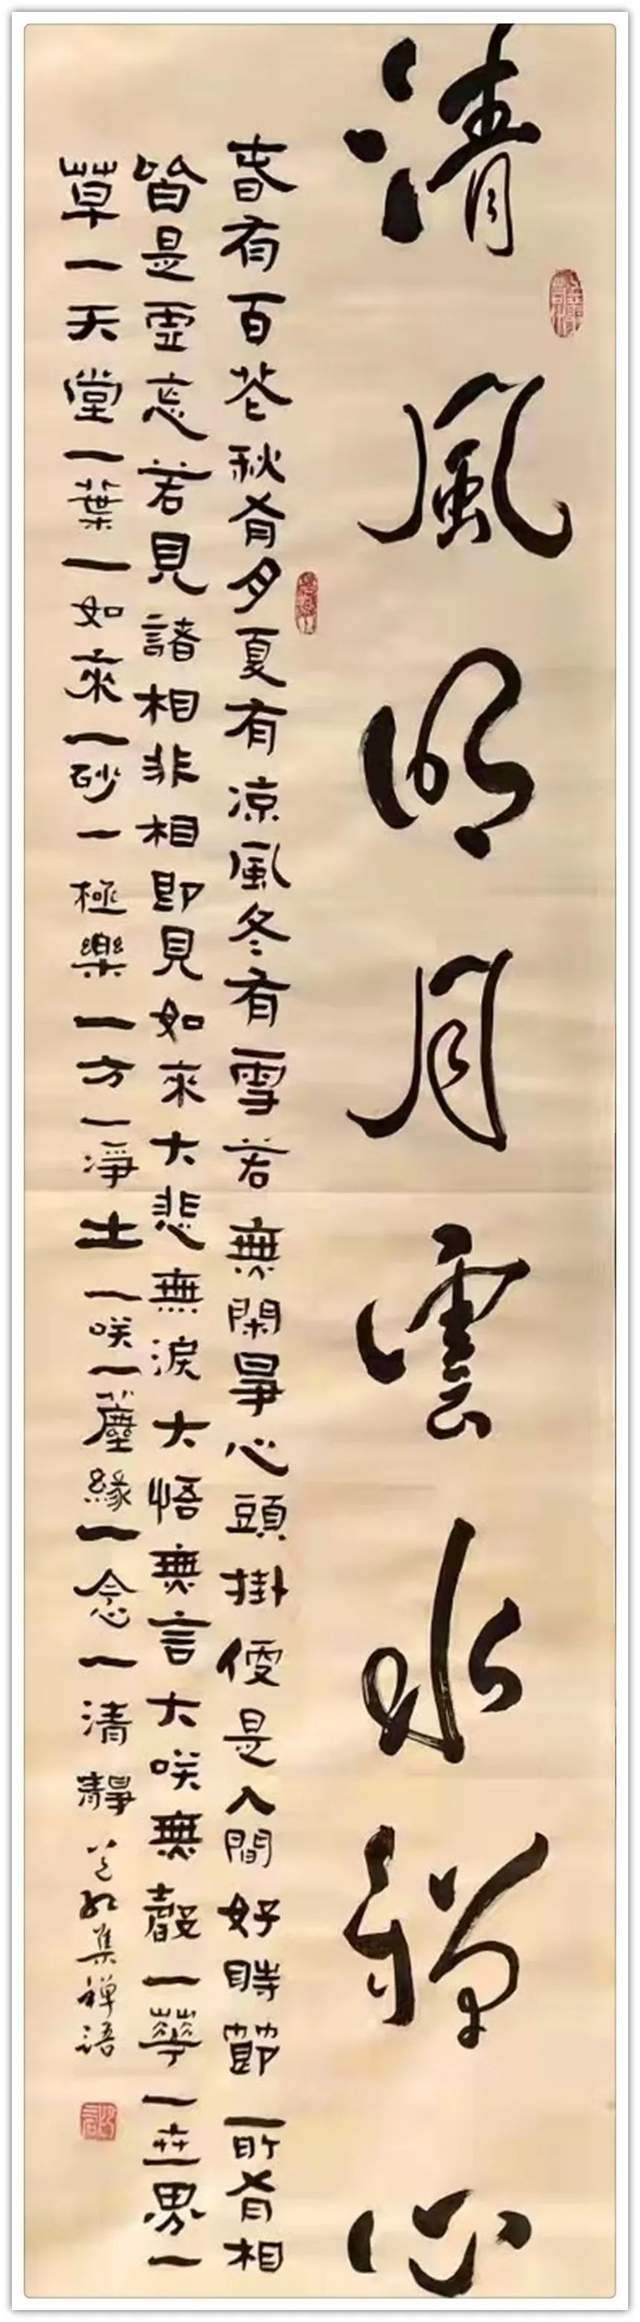 清風明月雲水禪心
春有百花秋有月夏有凉風冬有雪若無閑事心頭掛便是人間好時節一所有相
皆是虛忘若見諸相非相即見如來大悲無淚大悟無言大咲無聲一華一世界一
草一天堂一葉一如來一砂一極樂一方一淨土一咲一塵緣一念一清靜
集禅语